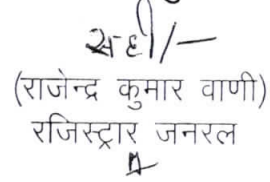 सही/—
(राजेन्द्र कुमार वाणी)
रजिस्ट्रार जनरल